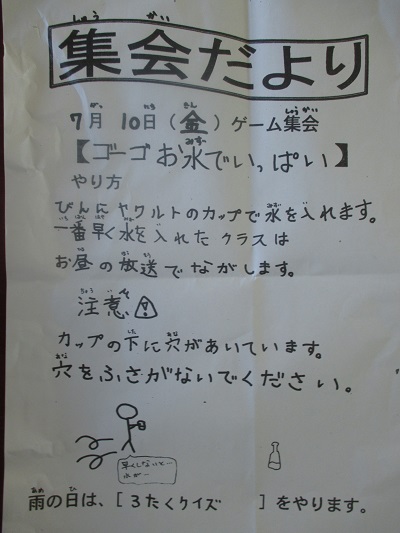 集会だより
7月 10日（金）ゲーム集会
【ゴーゴお水でいっぱい】
やり方
びんにヤクルトのカップで水を入れます。
一番早く水を入れたクラスは
お昼の放送でながします。
注意
カップの下に穴があいています。
穴をふさがないでください。
早くしないとー
水がー
雨の日は、［3たくクイズ　　］をやります。